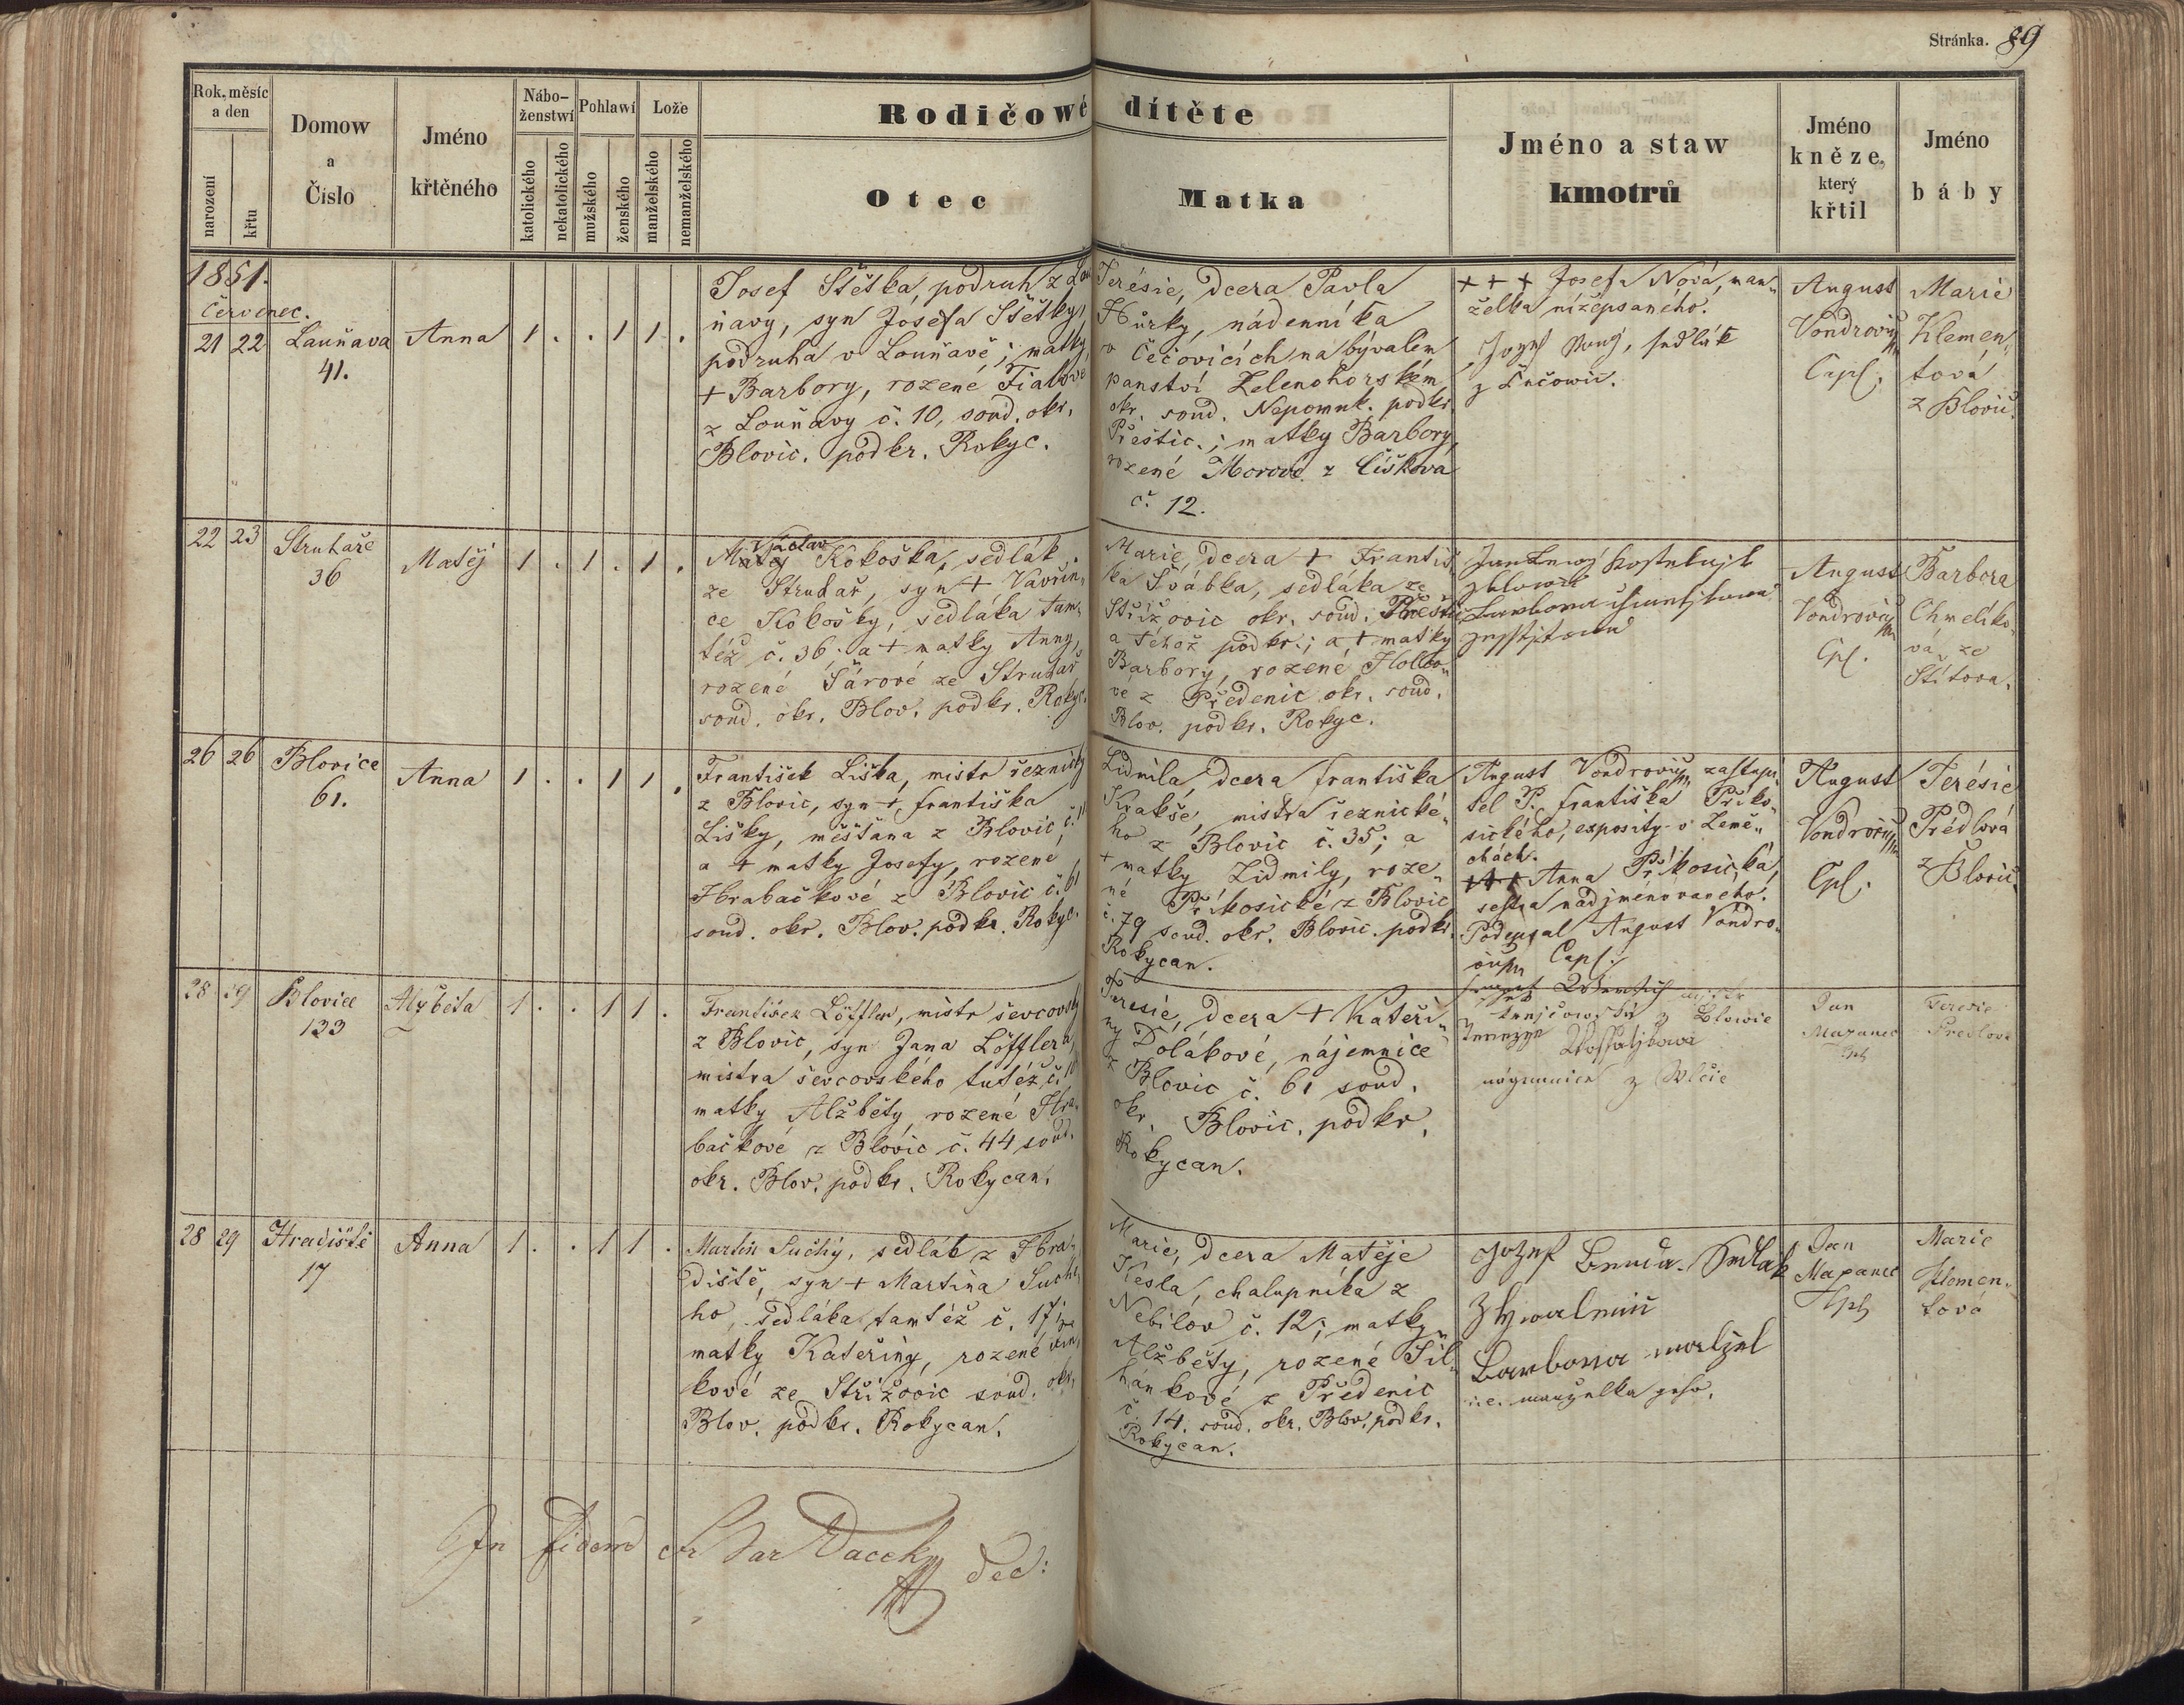 Stránka. 89
Rok, měsíc
a den
narození
křtu
Domow
a
Číslo
Jméno
křtěného
Nábo-
ženstwí
katolického
nekatolického
Pohlawí
mužského
ženského
Lože
manželského
nemanželského
Rodičowé dítěte
Otec
Matka
Jméno a staw
kmotrů
Jméno
kněze,
který
křtil
Jméno
báby
1851.
Červenec.
21 22
Launava
41.
Anna
1 . . 1 1 .
Josef Štětka, podruh z Lou
ňavy, syn Josefa Štětky,
podruha v Louňavě; matky
+ Barbory, rozené Fialové
z Louňavy č. 10, soud. okr.
Blovic. podkr. Rokyc.
Terésie, dcera Pavla
Hůrky, nádenníka
v Čečovicích na bývalém
panství Zelenohorském
okr. soud. Nepomuk. podkr.
Přeštic.; matky Barbory,
rozené Morové z Číškova
č. 12.
+ + + Josefa Nová, man„
želka nížepsaného.
Jozef Nový, sedlák
z Čečowic.
August
Vondrovič
Capl.
Marie
Klemen„
tová
z Blovic.
22 23
Struhaře
36
Matěj
1 . 1 . 1 .
Václav
Matěj Kokoška, sedlák
ze Struhař, syn + Vavřin„
ce Kokošky, sedláka tam„
též č. 36. a + matky Anny,
rozené Šárové ze Struhař
soud. okr. Blov. podkr. Rokyc.
Marie, dcera + Františ
ka Švábka, sedláka ze
Střížovic okr. soud. Přeštic
a téhož podkr.; a + matky
Barbory, rozené
ve z Předenic okr. soud.
Blov. podkr. Rokyc.
August
Vondrovič
Cpl.
Barbora
Chmelíko„
vá, ze
Štítova.
26 26
Blovice
61.
Anna
1 . . 1 1 .
František Liška, mistr řeznický
z Blovic, syn + Františka
Lišky, měšťana z Blovic
a + matky Josefy, rozené
Hrabačkové z Blovic č. 61
soud. okr. Blov. podkr. Rokyc.
Lidmila, dcera Františka
Krakše, mistra řeznické„
ho z Blovic č. 35; a
+ matky Lidmily, roze„
né Příkosické z Blovic
č. 79 soud. okr. Blovic. podkr.
Rokycan.
August Vondrovič zastupi„
tel P. Františka Příko„
sického, exposity v Země„
chách.
+++ Anna Příkosická,
sestra nadjmenovaného.
Podepsal August Vondro„
vič Capl.
August
Vondrovič
Cpl.
Terésie
Prédlová
z Blovic.
28 29
Blovice
133
Alžběta
1 . . 1 1 .
František Löffler, mistr ševcovský
z Blovic, syn Jana Löfflera,
mistra ševcovského tutéž č.
matky Alžběty, rozené Hra„
bačkové z Blovic č. 44 soud.
okr. Blov. podkr. Rokycan.
Terésie, dcera + Kateři„
ny Dolákové, nájemnice
z Blovic č. 61 soud.
okr. Blovic. podkr.
Rokycan.
z Blowic
nágemnice z Wlčic
Jan
Mazanec
Cpl
Teresie
Predlova
28 29
Hradiště
17
Anna
1 . . 1 1 .
Martin Suchý, sedlák z Hra„
diště, syn + Martina Suché„
ho, sedláka tamtéž č. 17;
matky Kateřiny, rozené
kové ze Střížovic soud. okr.
Blov. podkr. Rokycan.
Marie, dcera Matěje
Kesla, chalupníka z
Nebílov č. 12; matky
Alžběty, rozené Šil„
hankové z Předenic
č. 14. soud. okr. Blov. podkr.
Rokycan.
Jozef Sedlák
Barbora
i.e. manželka geho.
Jan
Mazanec
Cpl
Marie
Klemen„
tová
In fidem
Dec: